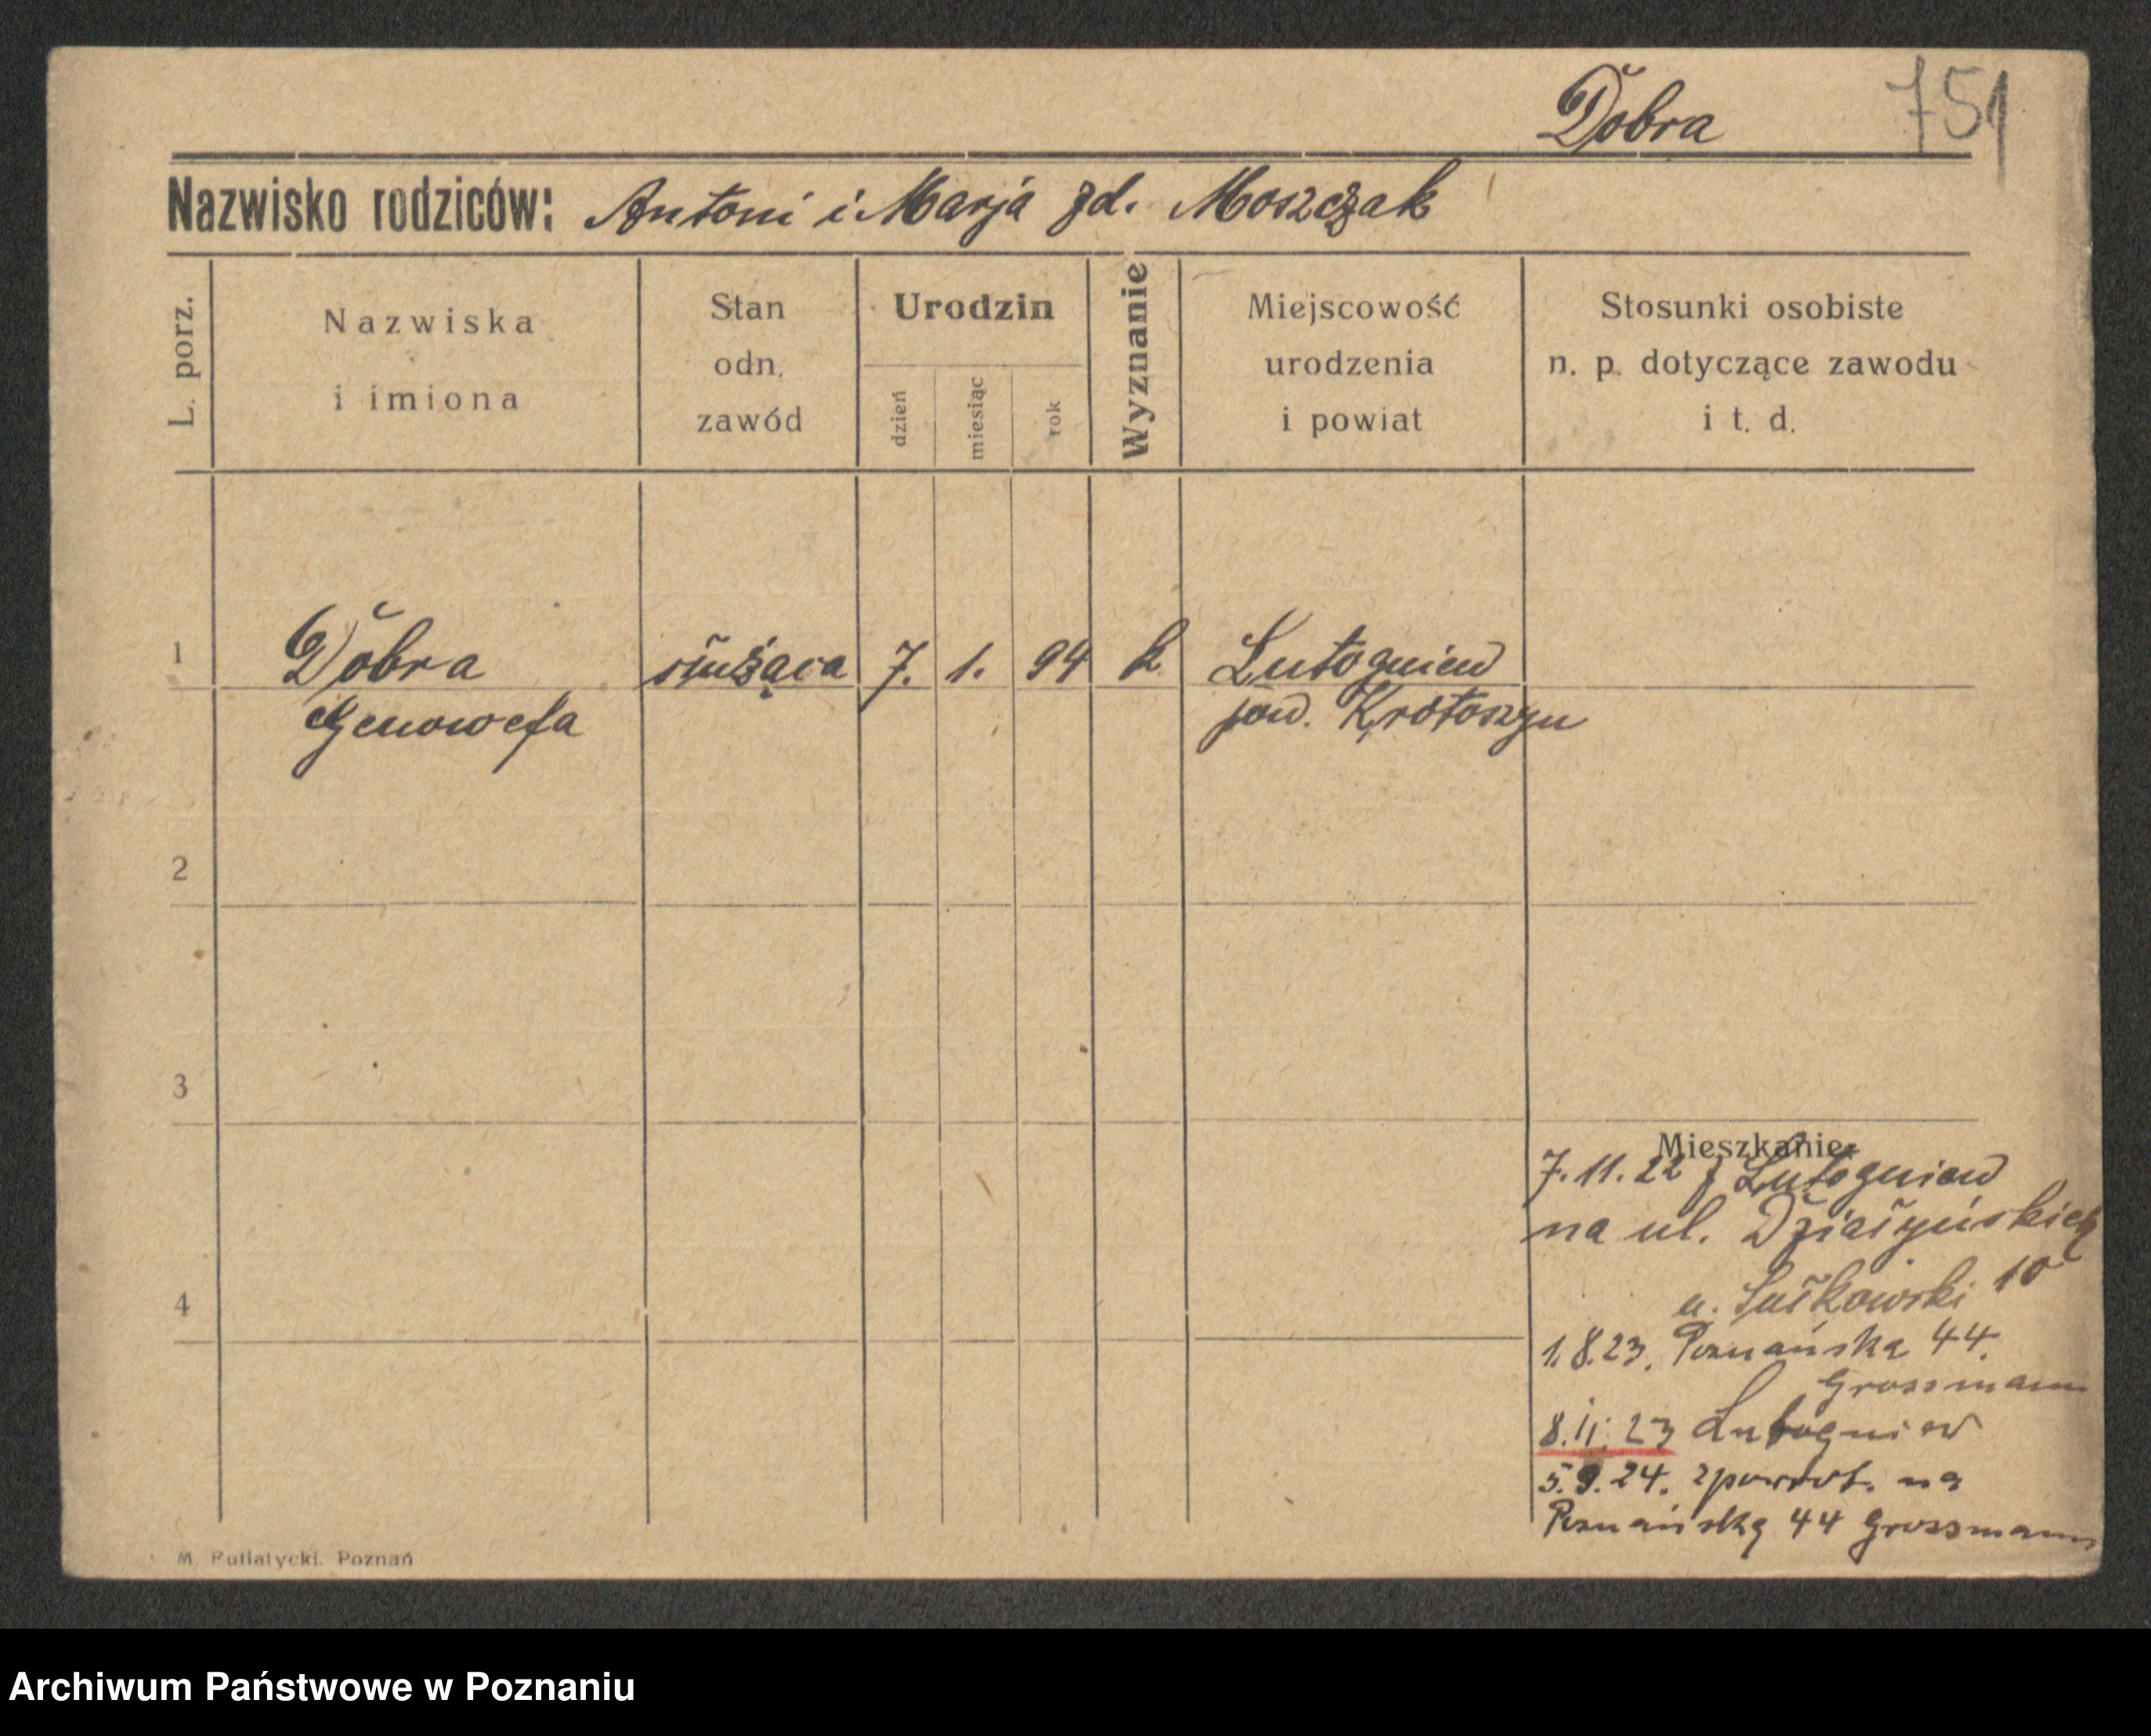 Dobra 751
Nazwisko rodziców: Antoni i Marja zd. Moszczak
L. porz.
Nazwiska
i imiona
Stan
odn.
zawód
Urodzin
dzień
miesiąc
rok
Wyznanie
Miejscowość
urodzenia
i powiat
Stosunki osobiste
n. p. dotyczące zawodu
i t. d.
1 Dobra służąca 7. 1. 94 k Lutogniew
Genowefa pow. Krotoszyn
2
3
Mieszkanie
7.11.22 z Lutogniew
na ul. Działyńskich
10
4
1.8.23. Poznańska 44.
Grossmann
8.11.23 Lutogniew
5.9.24. zpowrot. na
Poznańską 44 Grossmann
M. Putiatycki. Poznań
Archiwum Państwowe w Poznaniu